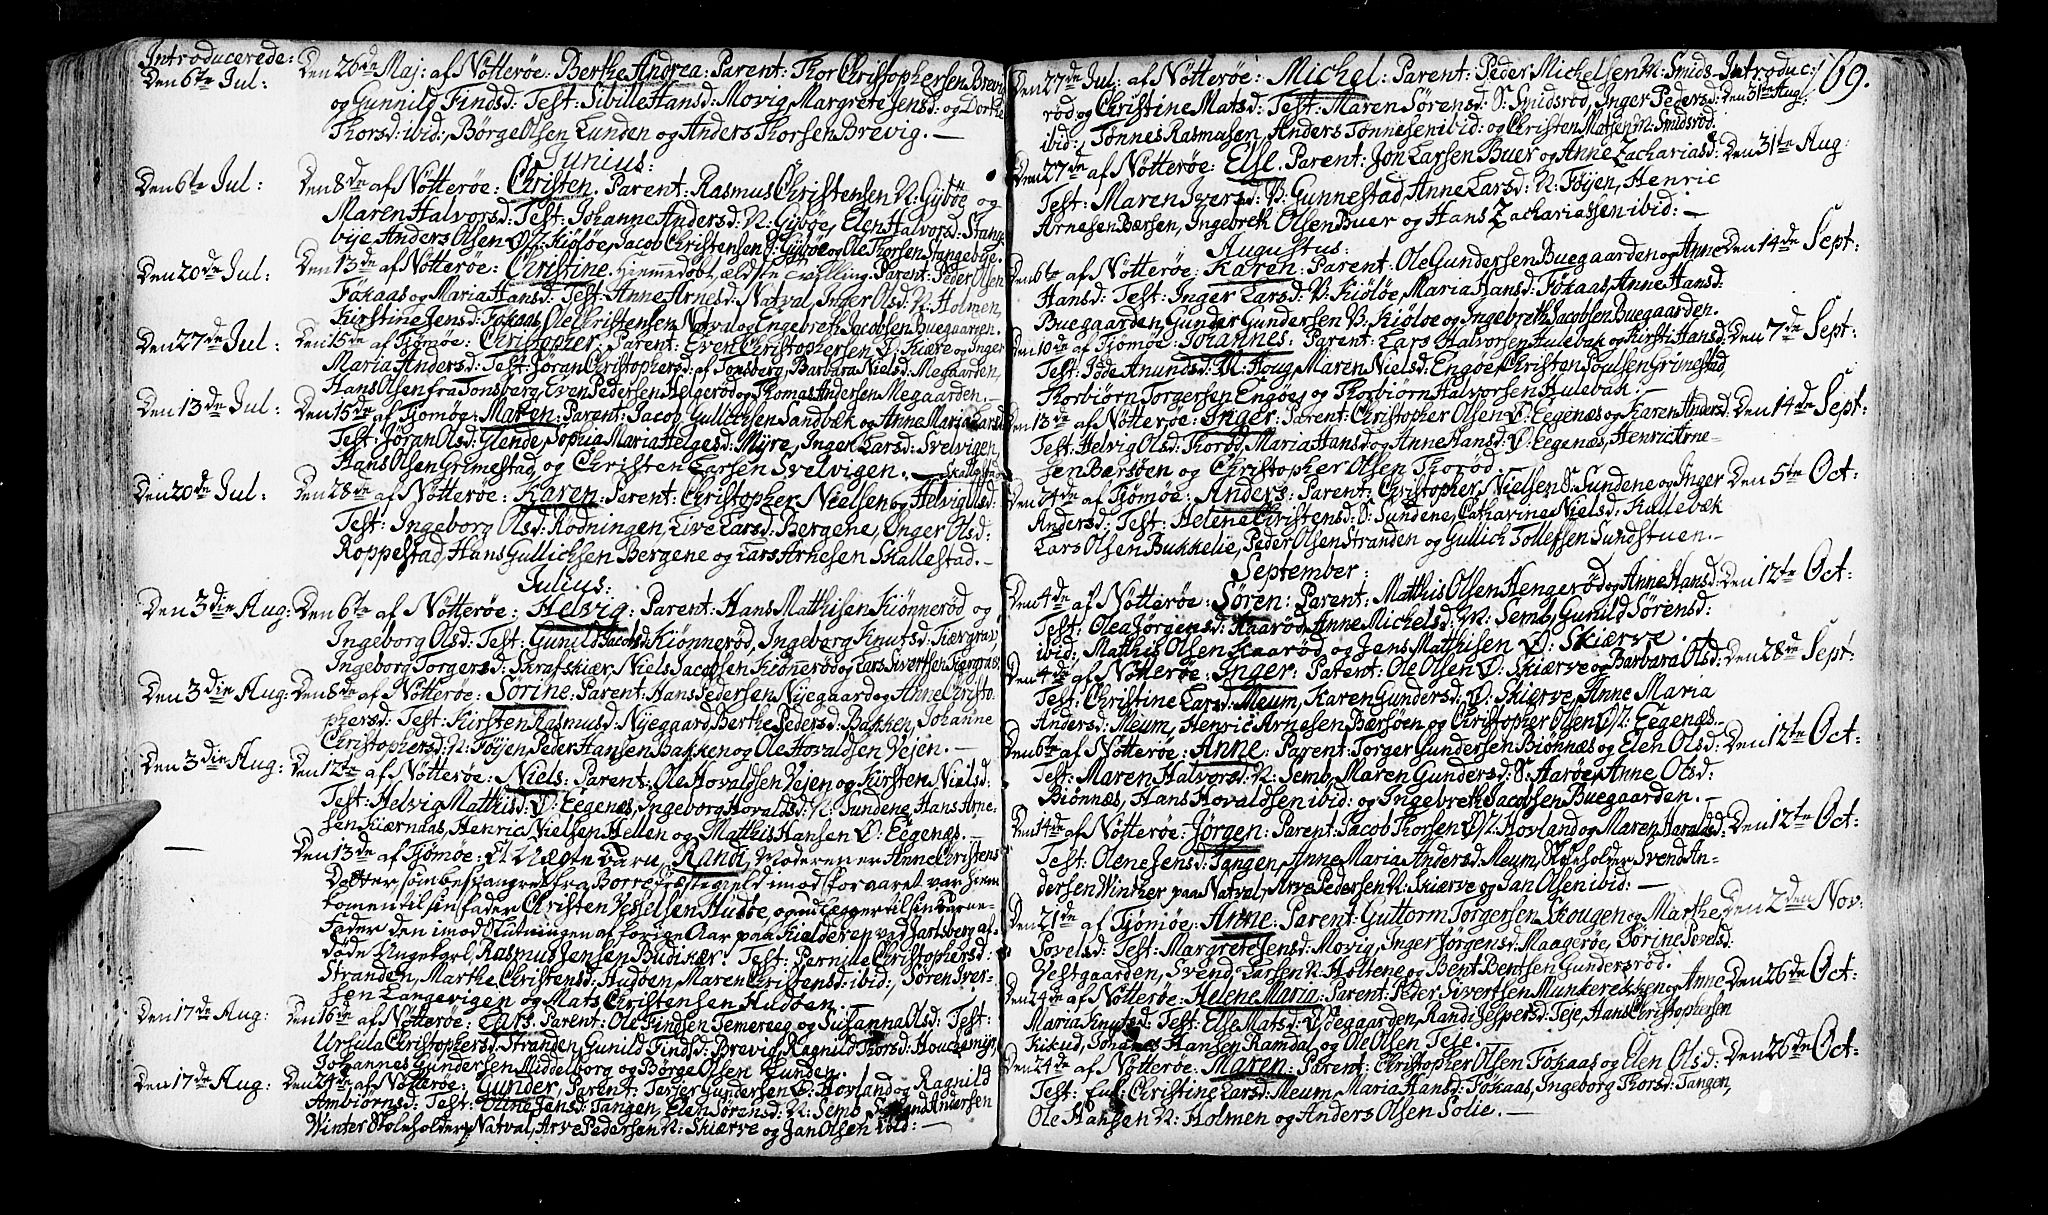 Introducerede:
Den 6te Jul: Den 26de Maj: af Nötterøe: Berthe Andrea: Parent: Thor Christophersen Brevig
og Gunnild Findsd: Test: Sibille Hansd: Movig, Margrete Jensd: og Dorthe
Thorsd: ibid:, Börge Olsen Lunden og Anders Thorsen Brevig. —
Junius:
Den 6te Jul: Den 8de af Nötterøe: Christen. Parent: Rasmus Christensen N: Gipöe og
Maren Halvorsd: Test: Johanne Andersd: N: Gipöe, Elen Halvorsd: Stange
bye Anders Olsen Kiöløe, Jacob Christensen Gipöe og Ole Thorsen Stangebye.
Den 20de Jul: Den 13de af Nötterøe: Christine. Hiemmedöbt, ældste tvilling. Parent: Peder Olsen
Fökaas og Maria Hansd: Test: Anne Arnesd: Natval, Inger Olsd: N: Holmen,
Kirstine Jensd: Fokaas, Ole Christensen Natval og Engebreth Jacobsen Buegaarden.
Den 27de Jul: Den 15de af Tjömöe: Christopher. Parent: Even Christophersen Ø: Kiære og Inger
Maria Andersd: Test: Jöran Christophersd: af Tonsberg, Barbara Nielsd: Megaarden,
Hans Olsen fra Tonsberg, Even Pedersen Helgerød og Thomas Andersen Megaarden.
Den 13de Jul: Den 15de af Tjömöe: Maren: Parent: Jacob Gullichsen Sandbæk og Anne Maria Larsd:
Test: Jöran Olsd: Glende, Sophia Maria Helgesd: Myre, Inger Larsd: Svelvigen,
Hans Olsen Grimestad og Christen Larsen Svelvigen. —
Skallestad
Den 20de Jul: Den 28de af Nötterøe: Karen: Parent: Christopher Nielsen og Helvig Olsd:
Test: Ingeborg Olsd: Rodningen, Live Larsd: Bergene, Inger Olsd:
Roppestad, Hans Gullichsen Bergene og Lars Arnesen Skallestad. —
Julius:
Den 3die Aug: Den 6te af Nötterøe: Helvig: Parent: Hans Mathisen Kiönneröd og
Ingeborg Olsd: Test: Gunild Jacobsd: Kiönneröd, Ingeborg Knutsd: Tiergrav,
Ingeborg Torgersd: Skrafskiær, Niels Jacobsen Kiöneröd og Lars Sivertsen Tiergrav.
Den 3die Aug: Den 8de af Nötterøe: Sörine: Parent: Hans Pedersen Nyegaard og Anne Christo-
phersd: Test: Kirsten Rasmusd: Nyegaard, Berthe Pedersd: Bakken, Johanne
Christophersd: N: Föyen, Peder Hansen Bakken og Ole Hovaldsen Vejen. —
Den 3die Aug: Den 12te af Nötterøe: Niels: Parent: Ole Hovaldsen Vejen og Kirsten Nielsd:
Test: Helvig Matthisd: Ø: Eegenæs, Ingeborg Hovaldsd: N: Sundene, Hans Arne-
sen Kiærnaas, Henric Nielsen Hellen og Matthis Hansen Ø: Eegenæs. —
— Den 13de af Tjömöe: Et Uægte Barn, Randi, Moderen er Anne Christens
Datter som besvangret fra Borre Præstegield imod Foraaret var hiem
kommen til sin Fader Christen Vesselsen Hudöe, og udlægger til sin Barne-
Fader den imod Slutningen af forrige Aar paa Kielderen ved Jarlsberg af-
döde Ungkarl, Rasmus Jensen Budikær. Test: Pernille Christophersd:
Stranden, Marthe Christensd: Hudöen, Maren Christensd: ibid:, Sören Iver-
sen Langevigen og Mats Christensen Hudöen. —
Den 17de Aug: Den 16de af Nötterøe: Lars. Parent: Ole Findsen Temereeg og Susanna Olsd: Test:
Ursula Christophersd: Stranden, Gunild Findsd: Brevig, Ragnild Thorsd: Houchsmyr,
Johannes Gundersen Middelborg og Börge Olsen Lunden.
Den 17de Aug: Den 24de af Nötterøe: Gunder, Parent: Terjer Gundersen Ø: Hovland og Ragnild
Ambiörnsd: Test: Oline Jensd: Tangen, Elen Söransd: N: Semb, Svend Andersen
Winter Stoleholder Natval, Arve Pedersen N: Skiærve og Jan Olsen ibid: —
169.
Den 27de Jul: af Nötterøe: Michel: Parent: Peder Michelsen M: Smids- Introduc:
röd og Christine Matsd: Test: Maren Sörensd: S: Smidsröd, Inger Pedersd: Den 31te Aug:
ibid:, Tönnes Rasmusen, Anders Tönnesen ibid: og Christen Matsen M: Smidsröd.
Den 27de af Nötterøe: Else. Parent: Jon Larsen Buer og Anne Zachariasd: Den 31te Aug:
Test: Maren Iversd: V: Gunnestad, Anne Larsd: N: Föyen, Henric
Arnesen Bærsen, Ingebreth Olsen Buer og Hans Zachariassen ibid: —
Augustus:
Den 6te af Nötterøe: Karen: Parent: Ole Gundersen Buegaarden og Anne Den 14de Sept:
Hansd: Test: Inger Larsd: V: Kiöløe, Maria Hansd: Fökaas, Anne Hansd:
Buegaarden, Gunder Gundersen V: Kiöloe og Ingebreth Jacobsen Buegaarden.
Den 10de af Tjömöe: Johannes: Parent: Lars Halvorsen Hulebak og Kirsti Hansd: Den 7de Sept:
Test: Jöde Anundsd: M: Houg, Maren Nielsd: Engöe, Christen Poulsen Grimestad,
Thorbiörn Torgersen Engöe, og Thorbiörn Halvorsen Hulebak. —
Den 13de af Nötterøe: Inger: Parent: Christopher Olsen Ø: Eegenæs og Karen Andersd: Den 14de Sept:
Test: Helvig Olsd: Thoröd, Maria Hansd: og Anne Hansd: Ø: Eegenæs, Henric Arne-
sen Bærsöen og Christopher Olsen Thoröd.
Den 24de af Tjömöe: Anders: Parent: Christopher Nielsen S: Sundene og Inger Den 5te Oct:
Andersd: Test: Helene Christensd: S: Sundene, Catharine Nielsd: Kallebæk
Lars Olsen Bukkelie, Peder Olsen Stranden og Gullich Tollefsen Sundstuen. —
September:
Den 4de af Nötterøe: Sören: Parent: Matthis Olsen Hengeröd og Anne Hansd: Den 12te Oct:
Test: Olea Jörgensd: Kaaröd, Anne Michelsd: M: Semb, Gunild Sörensd:
ibid: Matthis Olsen Kaaröd og Jens Matthisen Ø: Skiærve. —
Den 4de af Nötterøe: Inger: Parent: Ole Olsen Ø: Skiærve og Barbara Olsd: Den 28de Sept:
Test: Christine Larsd: Meum, Karen Gundersd: Ø: Skiærve, Anne Maria
Andersd: Meum, Henric Arnesen Bærsöen og Christopher Olsen Eegenæs.
Den 6te af Nötterøe: Anne: Parent: Torger Gundersen Biönnæs og Elen Olsd: Den 12te Oct:
Test: Maren Halvorsd: N: Semb, Maren Gundersd: S: Aaröe, Anne Olsd:
Biönnæs, Hans Hovaldsen ibid: og Ingebreth Jacobsen Buegaarden. —
Den 14de af Nötterøe: Jörgen: Parent: Jacob Thorsen Hovland og Maren Haraldsd: Den 12te Oct:
Test: Olene Jensd: Tangen, Anne Maria Andersd: Meum, Stoleholder Svend An-
dersen Winther paa Natval, Arve Pedersen N: Skiærve og Jan Olsen ibid: —
Den 21de af Tjömöe: Anne: Parent: Guttorm Torgersen Skougen og Marthe Den 2den Nov:
Povelsd: Test: Margrete Jensd: Movig, Inger Jörgensd: Maagerøe, Sörine Povelsd:
Vestgaarden, Svend Larsen N: Holtene og Bent Bentsen Gundersröd.
Den 24de af Nötterøe: Helene Maria: Parent: Peder Sivertsen Munkerekken og Anne Den 26de Oct:
Maria Knutsd: Test: Else Matsd: Ødegaarden, Randi Jespersd: Teje, Hans Christophersen
Kikud, Johanes Hansen Ramdal og Ole Olsen Teje. —
Den 24de af Nötterøe: Maren: Parent: Christopher Olsen Fökaas og Elen Olsd: Den 26de Oct:
Test: Christine Larsd: Meum, Maria Hansd: Fökaas, Ingeborg Thorsd: Tangen,
Ole Hansen N: Holmen og Anders Olsen Solie. —